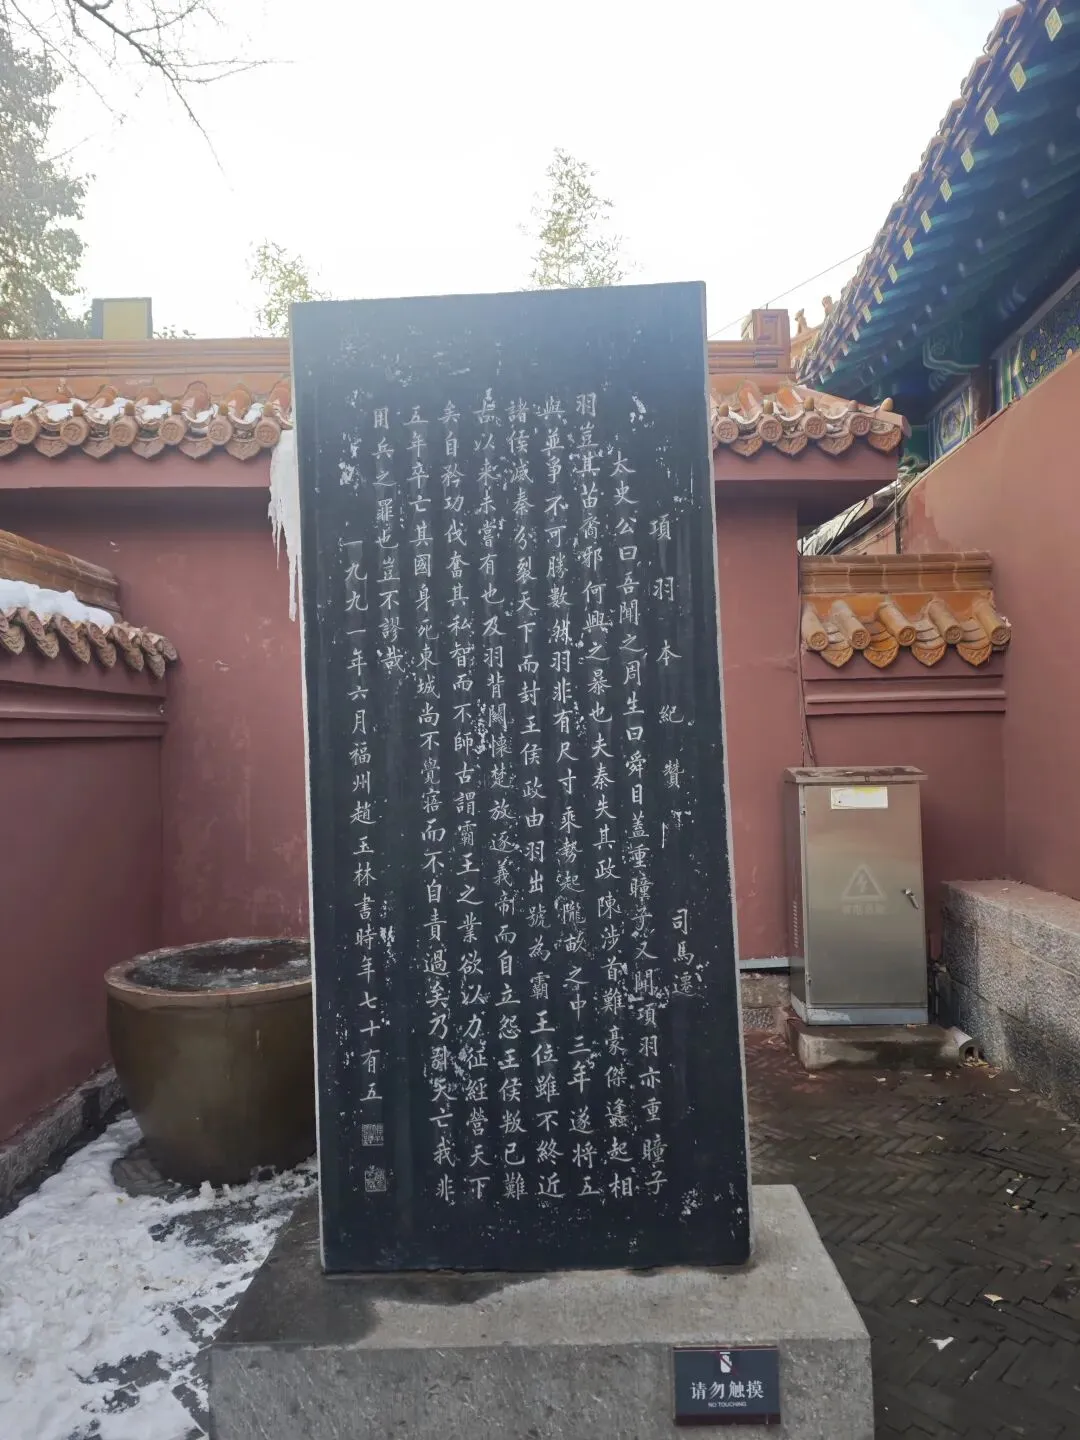 項羽本紀贊 司馬遷
太史公曰吾聞之周生曰舜目蓋重瞳子又聞項羽亦重瞳子
羽豈其苗裔邪何興之暴也夫秦失其政陳涉首難豪傑蠭起相
與並爭不可勝數然羽非有尺寸乘勢起隴畝之中三年遂將五
諸侯滅秦分裂天下而封王侯政由羽出號為霸王位雖不終近
古以來未嘗有也及羽背關懷楚放逐義帝而自立怨王侯叛已難
矣自矜功伐奮其私智而不師古謂霸王之業欲以力征經營天下
五年卒亡其國身死東城尚不覺寤而不自責過矣乃引天亡我非
用兵之罪也豈不謬哉
一九九一年六月福州趙玉林書時年七十有五
请勿触摸
NO TOUCHING